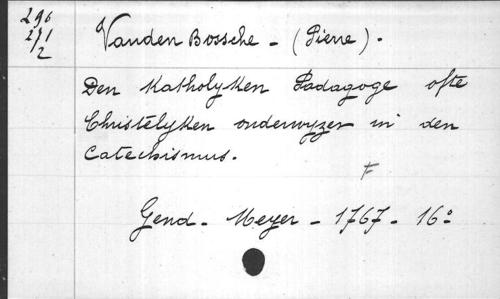 296
271
2
Vanden Bossche - (Pierre).
Den Katholyken Padagoge ofte
Christelyken onderwyzer in den
Catechismus.
F
Gend - Meyer - 1767 - 16°